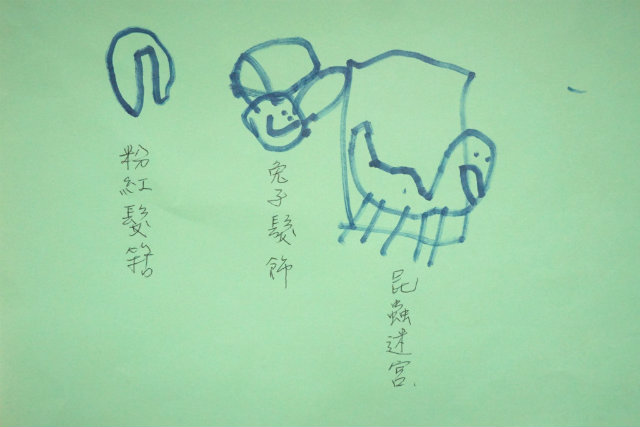 粉紅髮箍
兔子髮飾
昆蟲迷宮